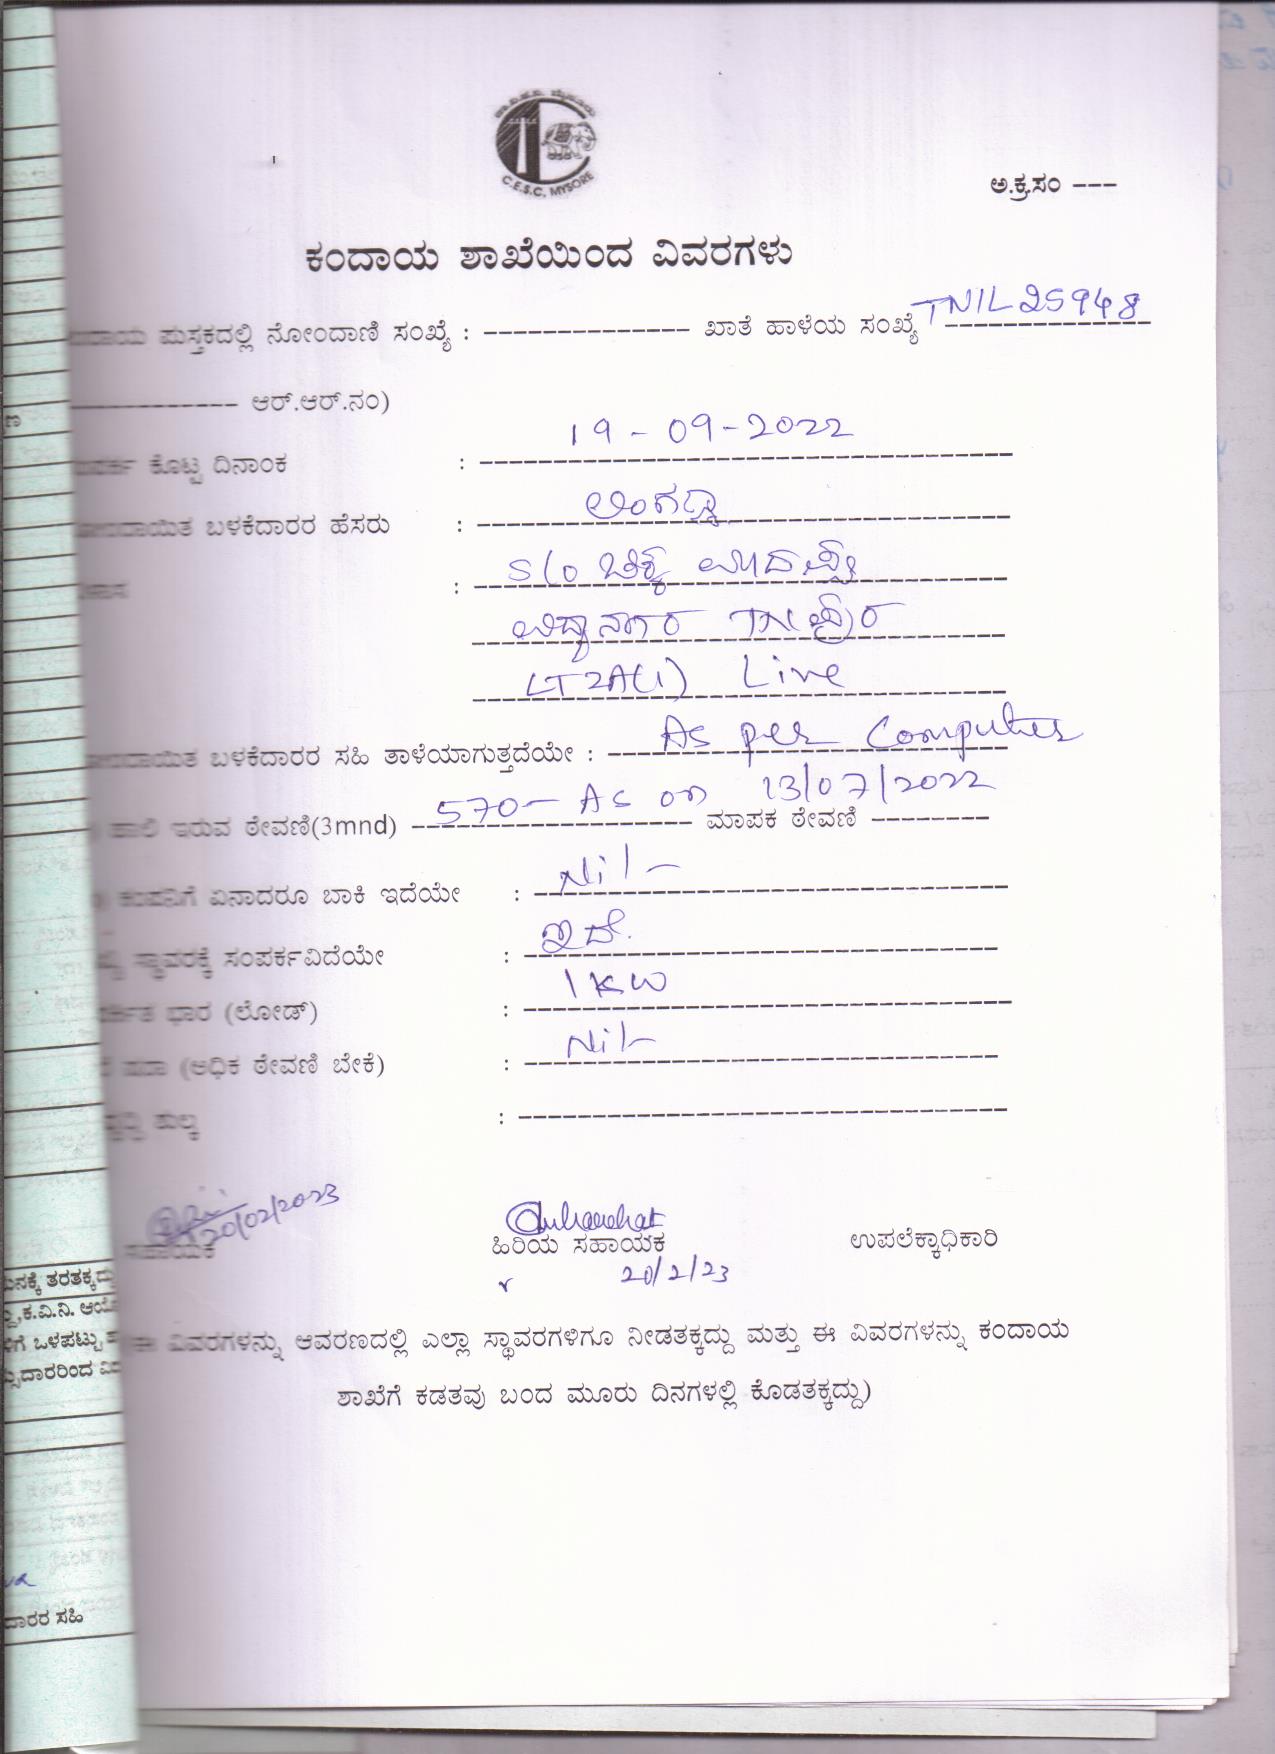 C.E.S.C. MYSORE
ಅ.ಕ್ರ.ಸಂ ---
ಕಂದಾಯ ಶಾಖೆಯಿಂದ ವಿವರಗಳು
ಪುಸ್ತಕದಲ್ಲಿ ನೋಂದಾಣಿ ಸಂಖ್ಯೆ : -------------- ಖಾತೆ ಹಾಳೆಯ ಸಂಖ್ಯೆ TNIL25948
------------ ಆರ್.ಆರ್.ನಂ)
ಕೊಟ್ಟ ದಿನಾಂಕ : 19-09-2022
ಬಳಕೆದಾರರ ಹೆಸರು :
: S/o ಚಿಕ್ಕ
ವಿದ್ಯಾನಗರ TNಪುರ
LT2A(1) Live
ಬಳಕೆದಾರರ ಸಹಿ ತಾಳೆಯಾಗುತ್ತದೆಯೇ : As per Computer
ಹಾಲಿ ಇರುವ ಠೇವಣಿ(3mnd) 570- As on 13/07/2022 ಮಾಪಕ ಠೇವಣಿ --------
ಕಂಪನಿಗೆ ಏನಾದರೂ ಬಾಕಿ ಇದೆಯೇ : Nil-
ಸ್ಥಾವರಕ್ಕೆ ಸಂಪರ್ಕವಿದೆಯೇ : ಇದೆ.
ಭಾರ (ಲೋಡ್) : 1KW
(ಅಧಿಕ ಠೇವಣಿ ಬೇಕೆ) : Nil-
ಶುಲ್ಕ :
20/02/2023
ಸಹಾಯಕ ಹಿರಿಯ ಸಹಾಯಕ ಉಪಲೆಕ್ಕಾಧಿಕಾರಿ
20/2/23
ಈ ವಿವರಗಳನ್ನು ಆವರಣದಲ್ಲಿ ಎಲ್ಲಾ ಸ್ಥಾವರಗಳಿಗೂ ನೀಡತಕ್ಕದ್ದು ಮತ್ತು ಈ ವಿವರಗಳನ್ನು ಕಂದಾಯ
ಶಾಖೆಗೆ ಕಡತವು ಬಂದ ಮೂರು ದಿನಗಳಲ್ಲಿ ಕೊಡತಕ್ಕದ್ದು)
ತರತಕ್ಕದ್ದು
ಕ.ವಿ.ನಿ.
ಒಳಪಟ್ಟು
ದಾರರ ಸಹಿ